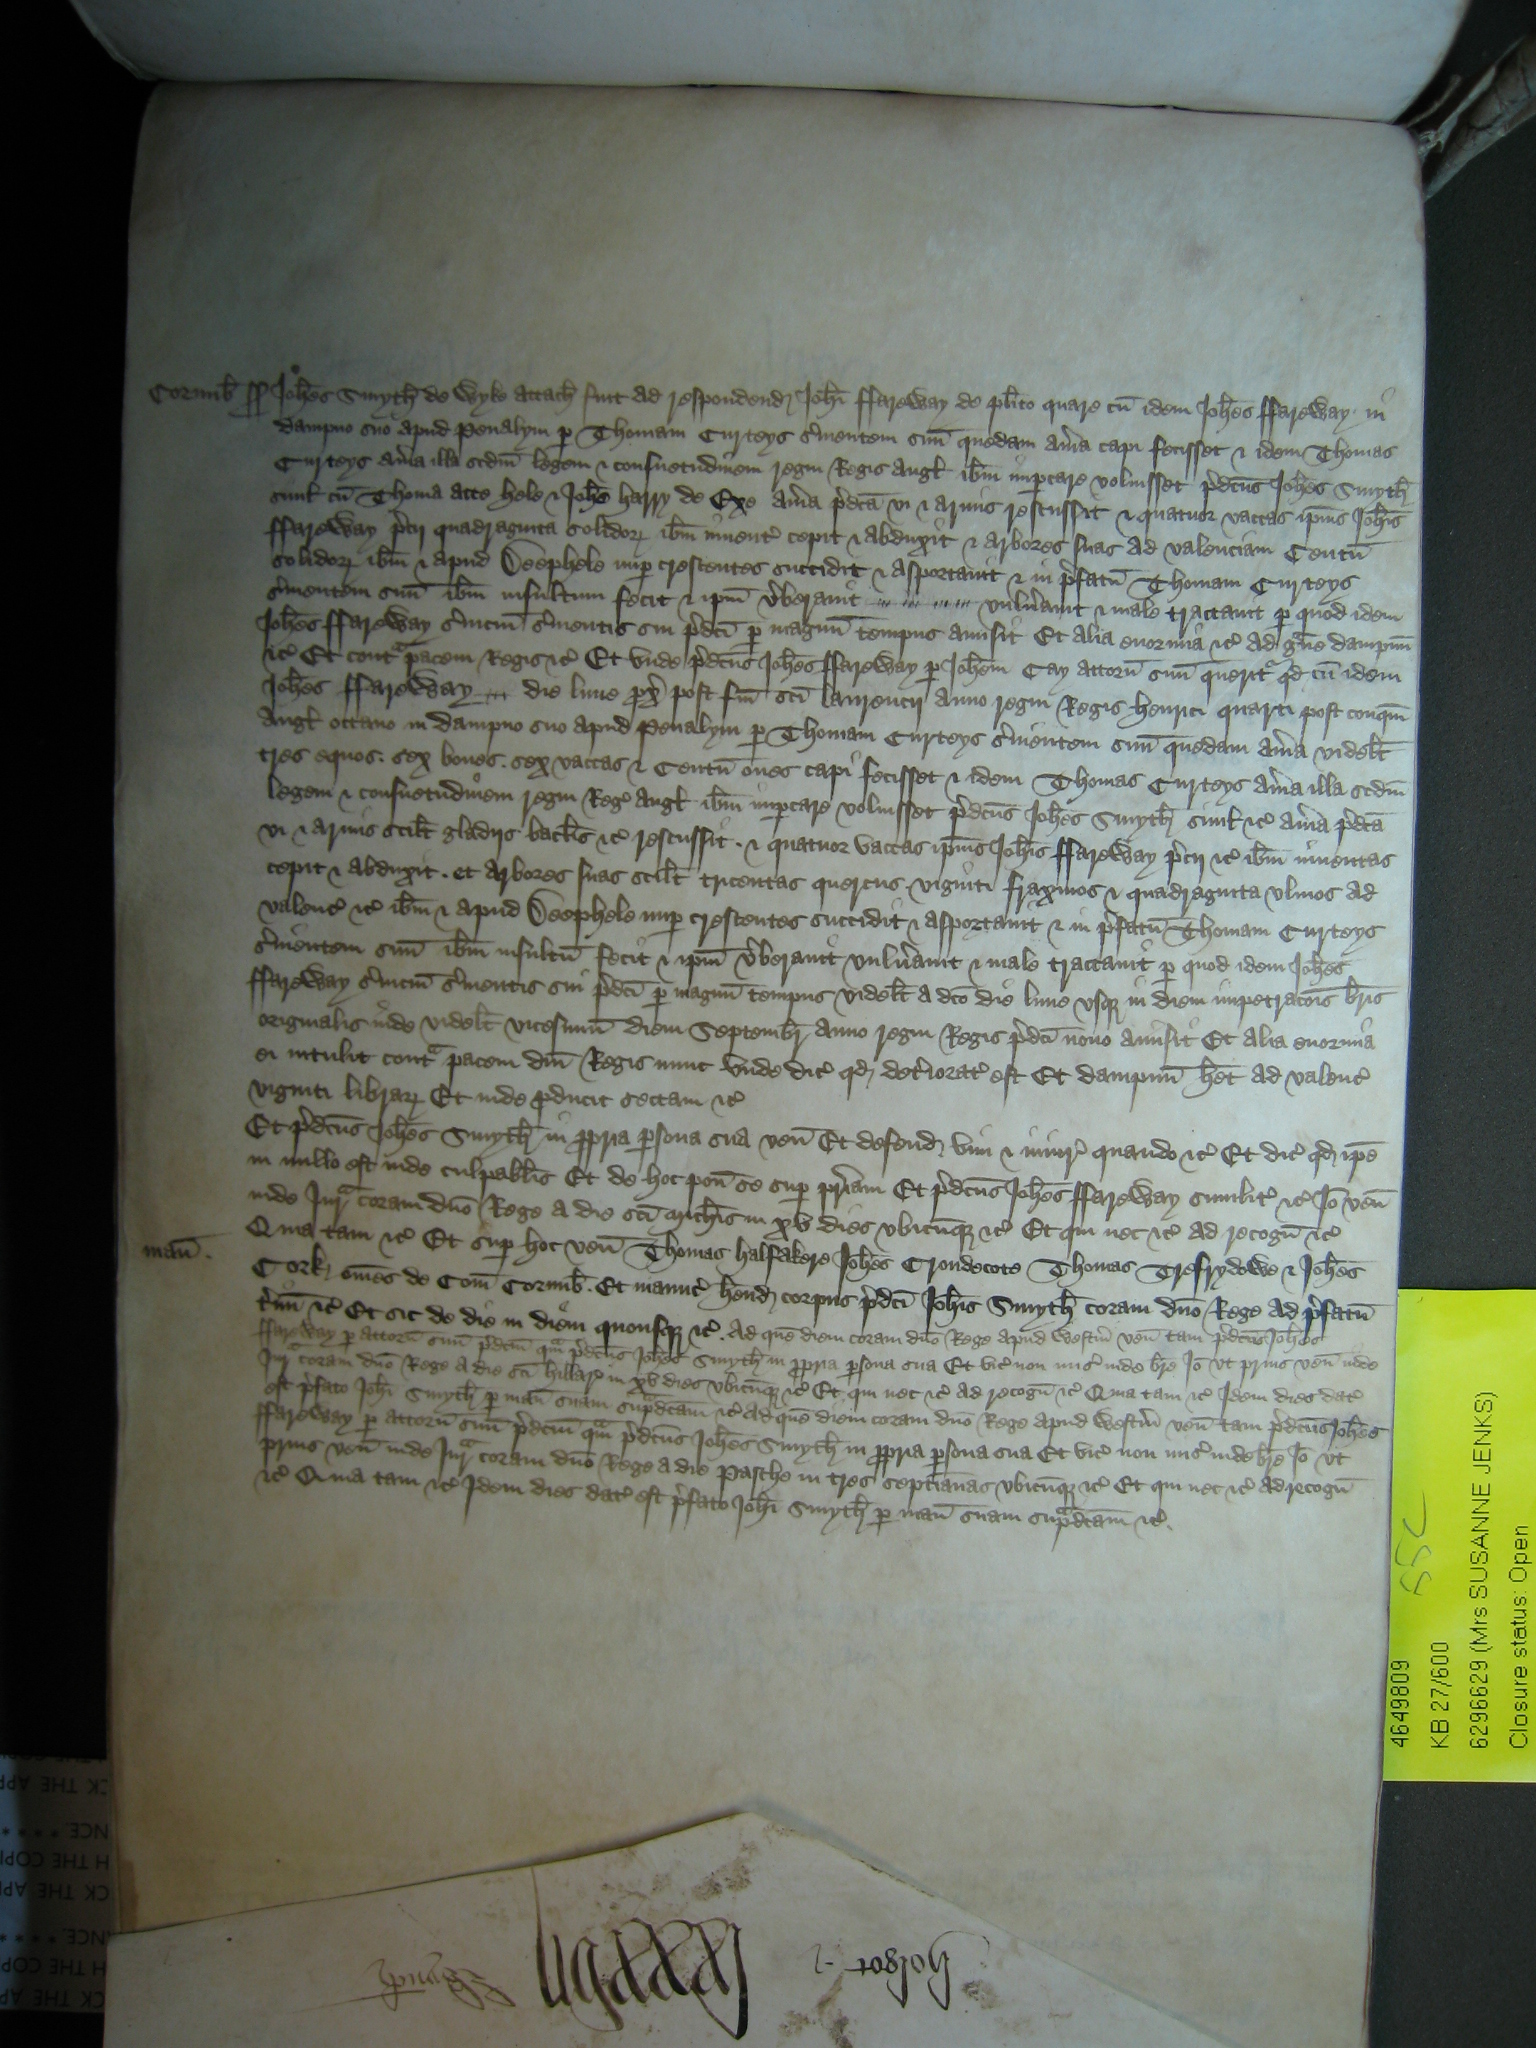 Cornub ss Joħes Smyth de Wyke attacħ fuit ad respondend Joħi ffareway de pɫito quare cū idem Joħes ffareway in
dampno suo apud Penalym p Thomam Curteys s'uientem suū quedam aueria capi fecisset & idem Thomas
Curteys aūia illa scdm legem & consuetudinem regni Regis Angɫ ibm inpcare voluisset p'dcūs Joħes Smyth
simɫ cū Thoma atte hele & Joħe harry de Exe aūia p'dcā vi & armis rescussit & quatuor vaccas ipīus Joħis
ffareway p'cii quadraginta solidoꝝ ibm inuent' cepit & abduxit & arbores suas ad valenciam Centū
solidoꝝ ibm & apud Deephele nup crescentes succidit & asportauit & in p'fatū Thomam Curteys
s'uientem suū ibm insultum fecit & ipm v'berauit vuln'auit & male tractauit p quod idem
Joħes ffareway s'uiciū s'uientis sui p'dcī p magnū tempus amisit Et alia enormia &c' ad g'ue dampnū
&c' Et contᵃ pacem Regis &c' Et vnde p'dcūs Joħes ffareway p Joħem Cay attorn suū queritᵘ qd cū idem
Joħes ffareway die lune px' post fm scī laurencii anno regni Regis henrici quarti post conqm
Angɫ octauo in dampno suo apud Penalym p Thomam Curteys s'uientem suū quedam aūia videɫt
tres equos. sex boues. sex vaccas & Centū oues capi fecisset & idem Thomas Curteys aūia illa scdm
legem & consuetudinem regni Reg' Angɫ ibm inpcare voluisset p'dcūs Joħes Smyth simɫ &c' aūia p'dcā
vi & armis sciɫt gladijs bacɫis &c' rescussit. & quatuor vaccas ipīus Joħis ffareway p'cii &c' ibm inuentas
cepit & abduxit. et arbores suas sciɫt tricentas quercus. viginti fraxinos & quadraginta vlmos ad
valenc' &c' ibm & apud Deephele nup crescentes succidit & asportauit & in p'fatū Thomam Curteys
s'uientem suū ibm insultū fecit & ipm v'berauit vuln'auit & male tractauit p quod idem Joħes
ffareway s'uiciū s'uientis sui p'dcī p magnū tempus videɫt a dco die lune vsqꝫ in diem impetracōis bris
originalis inde videɫt vicesimū diem Septembr' anno regni Regis p'dcī nono amisit Et alia enormia
ei intulit contᵃ pacem dni Regis nunc vnde dic' qd det'iorat' est Et dampnū het ad valenc'
viginti libraꝝ Et inde pducit sectam &c'
Et p'dcūs Joħes Smyth in ppria psona sua ven Et defend vim & iniur' quando &c' Et dic' qd ipe
in nullo est inde culpabɫis Et de hoc pon se sup pr'iam Et p'dcūs Joħes ffareway similit' &c' Jo ven
inde Jurᵃ coram dno Rege a die scī Micħis in xv dies vbicūqꝫ &c' Et qui nec &c' ad recogn &c'
Quia tam &c' Et sup hoc ven Thomas halfakere Joħes Crondecote Thomas Trefrydowe & Joħes
man.
Cork omēs de Com Cornub. Et manuc' hend corpus p'dcī Joħis Smyth coram dno Rege ad p'fatū
t'min &c' Et sic de die in diem quousqꝫ &c'. Ad quē diem coram dno Rege apud Westm ven tam p'dcūs Joħes
ffareway p attorn suū p'dcm qᵃm p'dcūs Joħes Smyth in ppria psona sua Et vic' non mis' inde bre Jo vt prius ven inde
Jurᵃ coram dno Rege a die scī hillarii in xv dies vbicūqꝫ &c' Et qui nec &c' ad recogn &c' Quia tam &c' Idem dies dat'
est p'fato Joħi Smyth p man suam supᵃdcām &c' Ad quē diem coram dno Rege apud Westm ven tam p'dcūs Joħes
ffareway p attorn suū p'dcm qᵃm p'dcūs Joħes Smyth in ppria psona sua Et vic' non mis' inde bre Jo vt
prius ven inde Jurᵃ coram dno Rege a die Pasche in tres septīanas vbicūqꝫ &c' Et qui nec &c' ad recogn
&c' Quia tam &c' Idem dies dat' est p'fato Joħi Smyth p man suam supᵃdcām &c'.
4649809
KB 27/600
SSC
6296629 (Mrs SUSANNE JENKS)
Closure status: Open